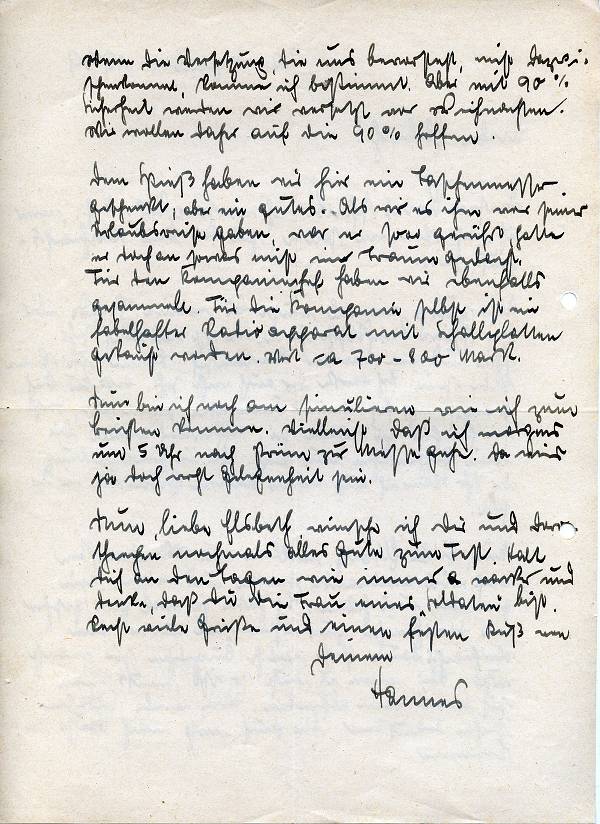 Wenn die Versetzung, die uns bevorsteht, nicht dazwi-
schenkommt, komme ich bestimmt. Aber mit 90 %
Sicherheit werden wir versetzt vor Weihnachten.
Wir wollen daher auf die 90 % hoffen.
Dem Spieß haben wir hier ein Taschenmesser
geschenkt, aber ein gutes. Als wir es ihm vor seiner
Urlaubsreise gaben, war er sogar gerührt, hatte
er doch an sowas nicht im Traum gedacht.
Für den Kompaniechef haben wir ebenfalls
gesammelt. Für die Kompanie selbst ist ein
fabelhafter Radioapparat mit Schallplatten
gekauft worden. Wert ca 700 - 800 Mark.
Nun bin ich noch am simulieren wie ich zum
beichten komme. Vielleicht, daß ich morgens
um 5 Uhr nach Prüm zur Messe gehe. Da wird
ja doch wohl Gelegenheit sein.
Nun, liebe Elsbeth, wünsche ich Dir und Doro-
theechen nochmals alles Gute zum Fest. Halt
Dich an den Tagen wie immer wacker und
denke, daß Du die Frau eines Soldaten bist.
Recht viele Grüße und einen festen Kuß von
Deinem
Hannes